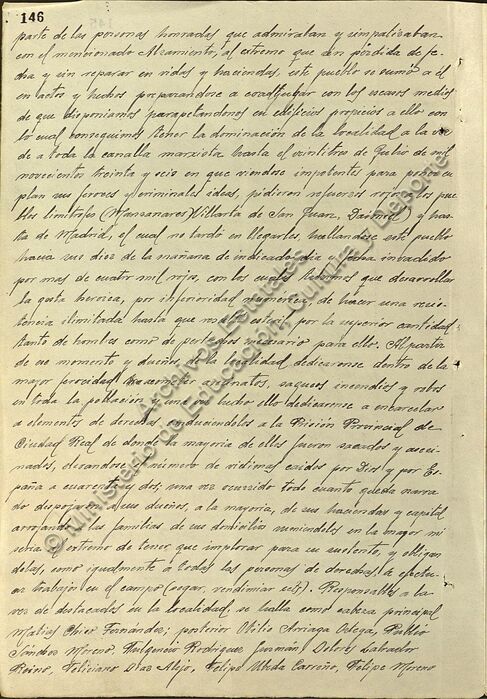 146
parte de las personas honradas que admiraban y simpatizaban
con el mencionado Alzamiento, al extremo que sin pérdida de fe-
cha y sin reparar en vidas y haciendas, este pueblo se sumó a él
en actos y hechos preparandose a coadyugar con los escasos medios
de que disponiamos parapetandonos en edificios propicios a ello con
lo cual conseguimos tener la dominación de la localidad a la vez
de a toda la canalla marxista hasta el veintitres de Julio de mil
novecientos treinta y seis en que viendose impotentes para poner en
plan sus feroces y criminales ideas, pidieron refuerzos rojos a los pue
blos limitrofes (Manzanares Villarta de San Juan, Daimiel) y has-
ta de Madrid, el cual no tardó en llegarles, hallandose este pueblo
hacia las diez de la mañana de indicado dia y fecha invadido
por mas de cuatro mil rojos, con los cuales hubimos que desarrollar
la gesta heroica, por inferioridad numerica, de hacer una resis-
tencia ilimitada hasta que resultó por la superior cantidad
tanto de hombres como de pertrechos necesario para ello. A partir
de ese momento y dueños de la localidad dedicaronse dentro de la
mayor ferocidad a cometer asesinatos, saqueos incendios y robos
en toda la población y una vez hecho ello dedicaronse a encarcelar
a elementos de derechas conduciendolos a la Prisión Provincial de
Ciudad Real de donde la mayoria de ellos fueron sacados y asesi-
nados, elevandose el número de victimas caidos por Dios y por Es-
paña a cuarenta y dos; una vez ocurrido todo cuanto queda narra
do despojaron a sus dueños, a la mayoria, de sus haciendas y capital
arrojando a las familias de sus domicilios sumiendoles en la mayor mi
seria y extremo de tener que implorar para su sustento, y obligan
dolas, como igualmente a todas las personas de derechas, a efectu-
ar trabajos en el campo (segar, vendimiar etc). Responsables a la
vez de destacados en la localidad, se halla como cabeza principal
Matias Chico Fernández; posterior Otilio Arriaga Ortega, Publio
Sánchez Moreno, Fulgencio Rodriguez Guzmán Dolores Labrador
Reino, Feliciano Dias Alejo, Felipe Ubeda Carreño, Felipe Moreno
© Ministerio de Educación, Cultura y Deporte
Archivos Estatales